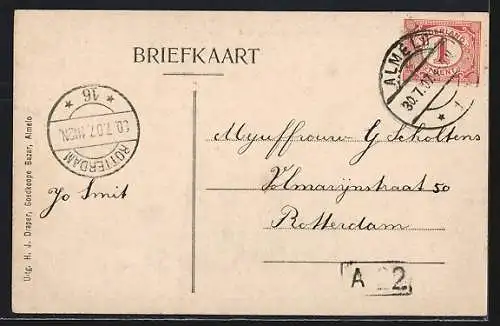 BRIEFKAART
NEDERLAND
1
CENT
ALMELO
30.7.07
1
16
30.7.07. 11-12N.
ROTTERDAM
Mejuffrouw G Scholtens
Jo Smit
Ilmarijnstraat 50
Rotterdam
A 22
Uitg. H. J. Draper, Goedkoope Bazar, Almelo